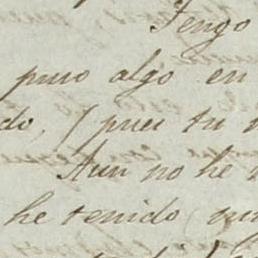 Tengo
puro algo en
do, (pues tu
Aun no he
he tenido